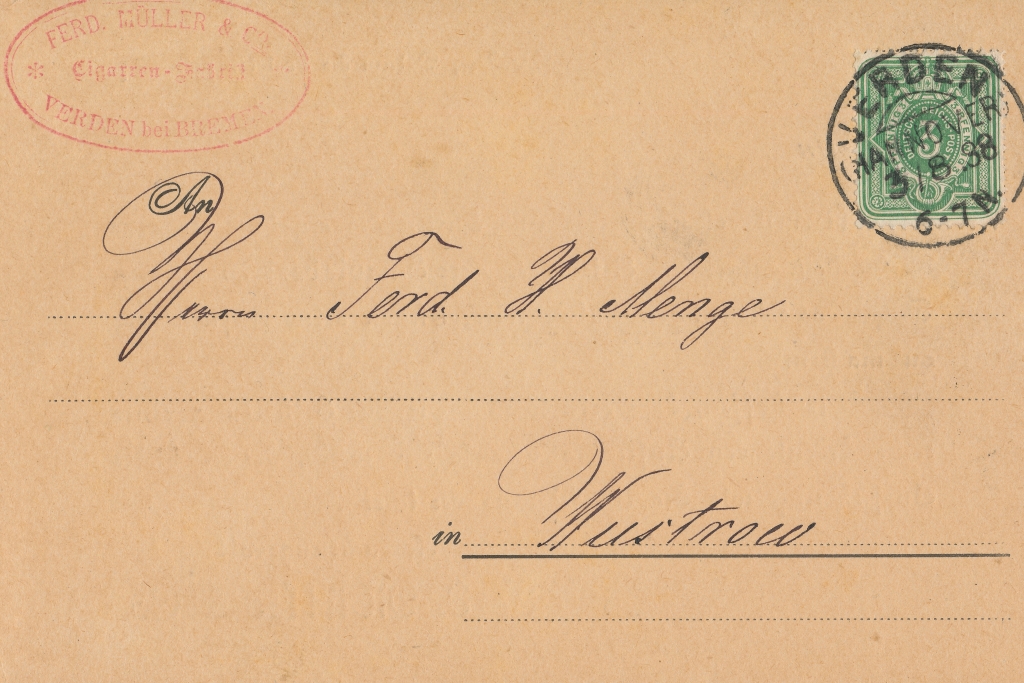 FERD. MÜLLER & Co.
* Cigarren-Fabrik *
VERDEN bei BREMEN
VERDEN
(HANNOVER)
3/8.88
6-7N.
An
Herrn Ferd. H. Menge
in Wustrow